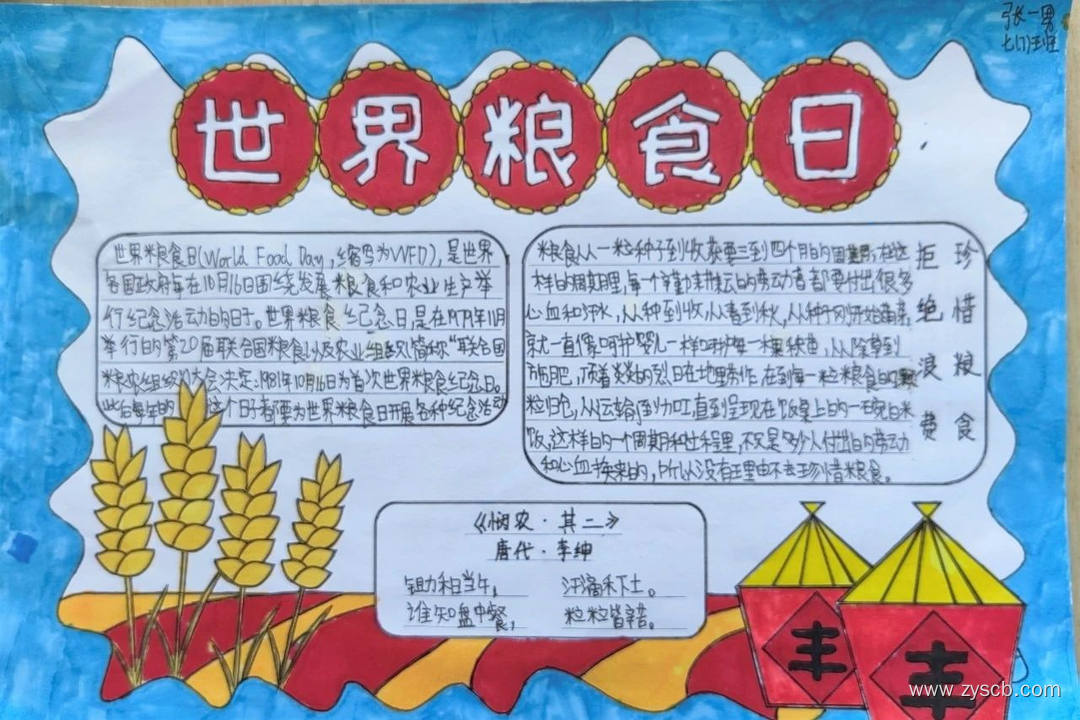 张一男
七(7)班
世界粮食日
世界粮食日(World Food Day,缩写为WFD),是世界
各国政府每年在10月16日围绕发展粮食和农业生产举
行纪念活动的日子。世界粮食纪念日,是在1979年11月
举行的第20届联合国粮食以及农业组织(简称"联合国
粮农组织")大会决定:1981年10月16日为首次世界粮食纪念日。
此后每年的这个日子都要为世界粮食日开展各种纪念活动
粮食从一粒种子到收获要三到四个月的周期,在这
样的周期里,每一个辛勤耕耘的劳动者都要付出很多
心血和汗水,从种到收,从春到秋,从种子刚开始萌芽,
就一直像呵护婴儿一样呵护每一棵秧苗,从除草到
施肥,顶着炎炎的烈日在地里劳作,在到每一粒粮食的
粒归仓,从运输到加工,直到呈现在饭桌上的一碗白米
饭,这样的一个周期和过程里,不仅是多少人付出的劳动
和心血换来的,所以没有理由不去珍惜粮食。
珍惜粮食
拒绝浪费
《悯农·其二》
唐代·李绅
锄禾日当午, 汗滴禾下土。
谁知盘中餐, 粒粒皆辛苦。
丰
丰
www.zyscb.com